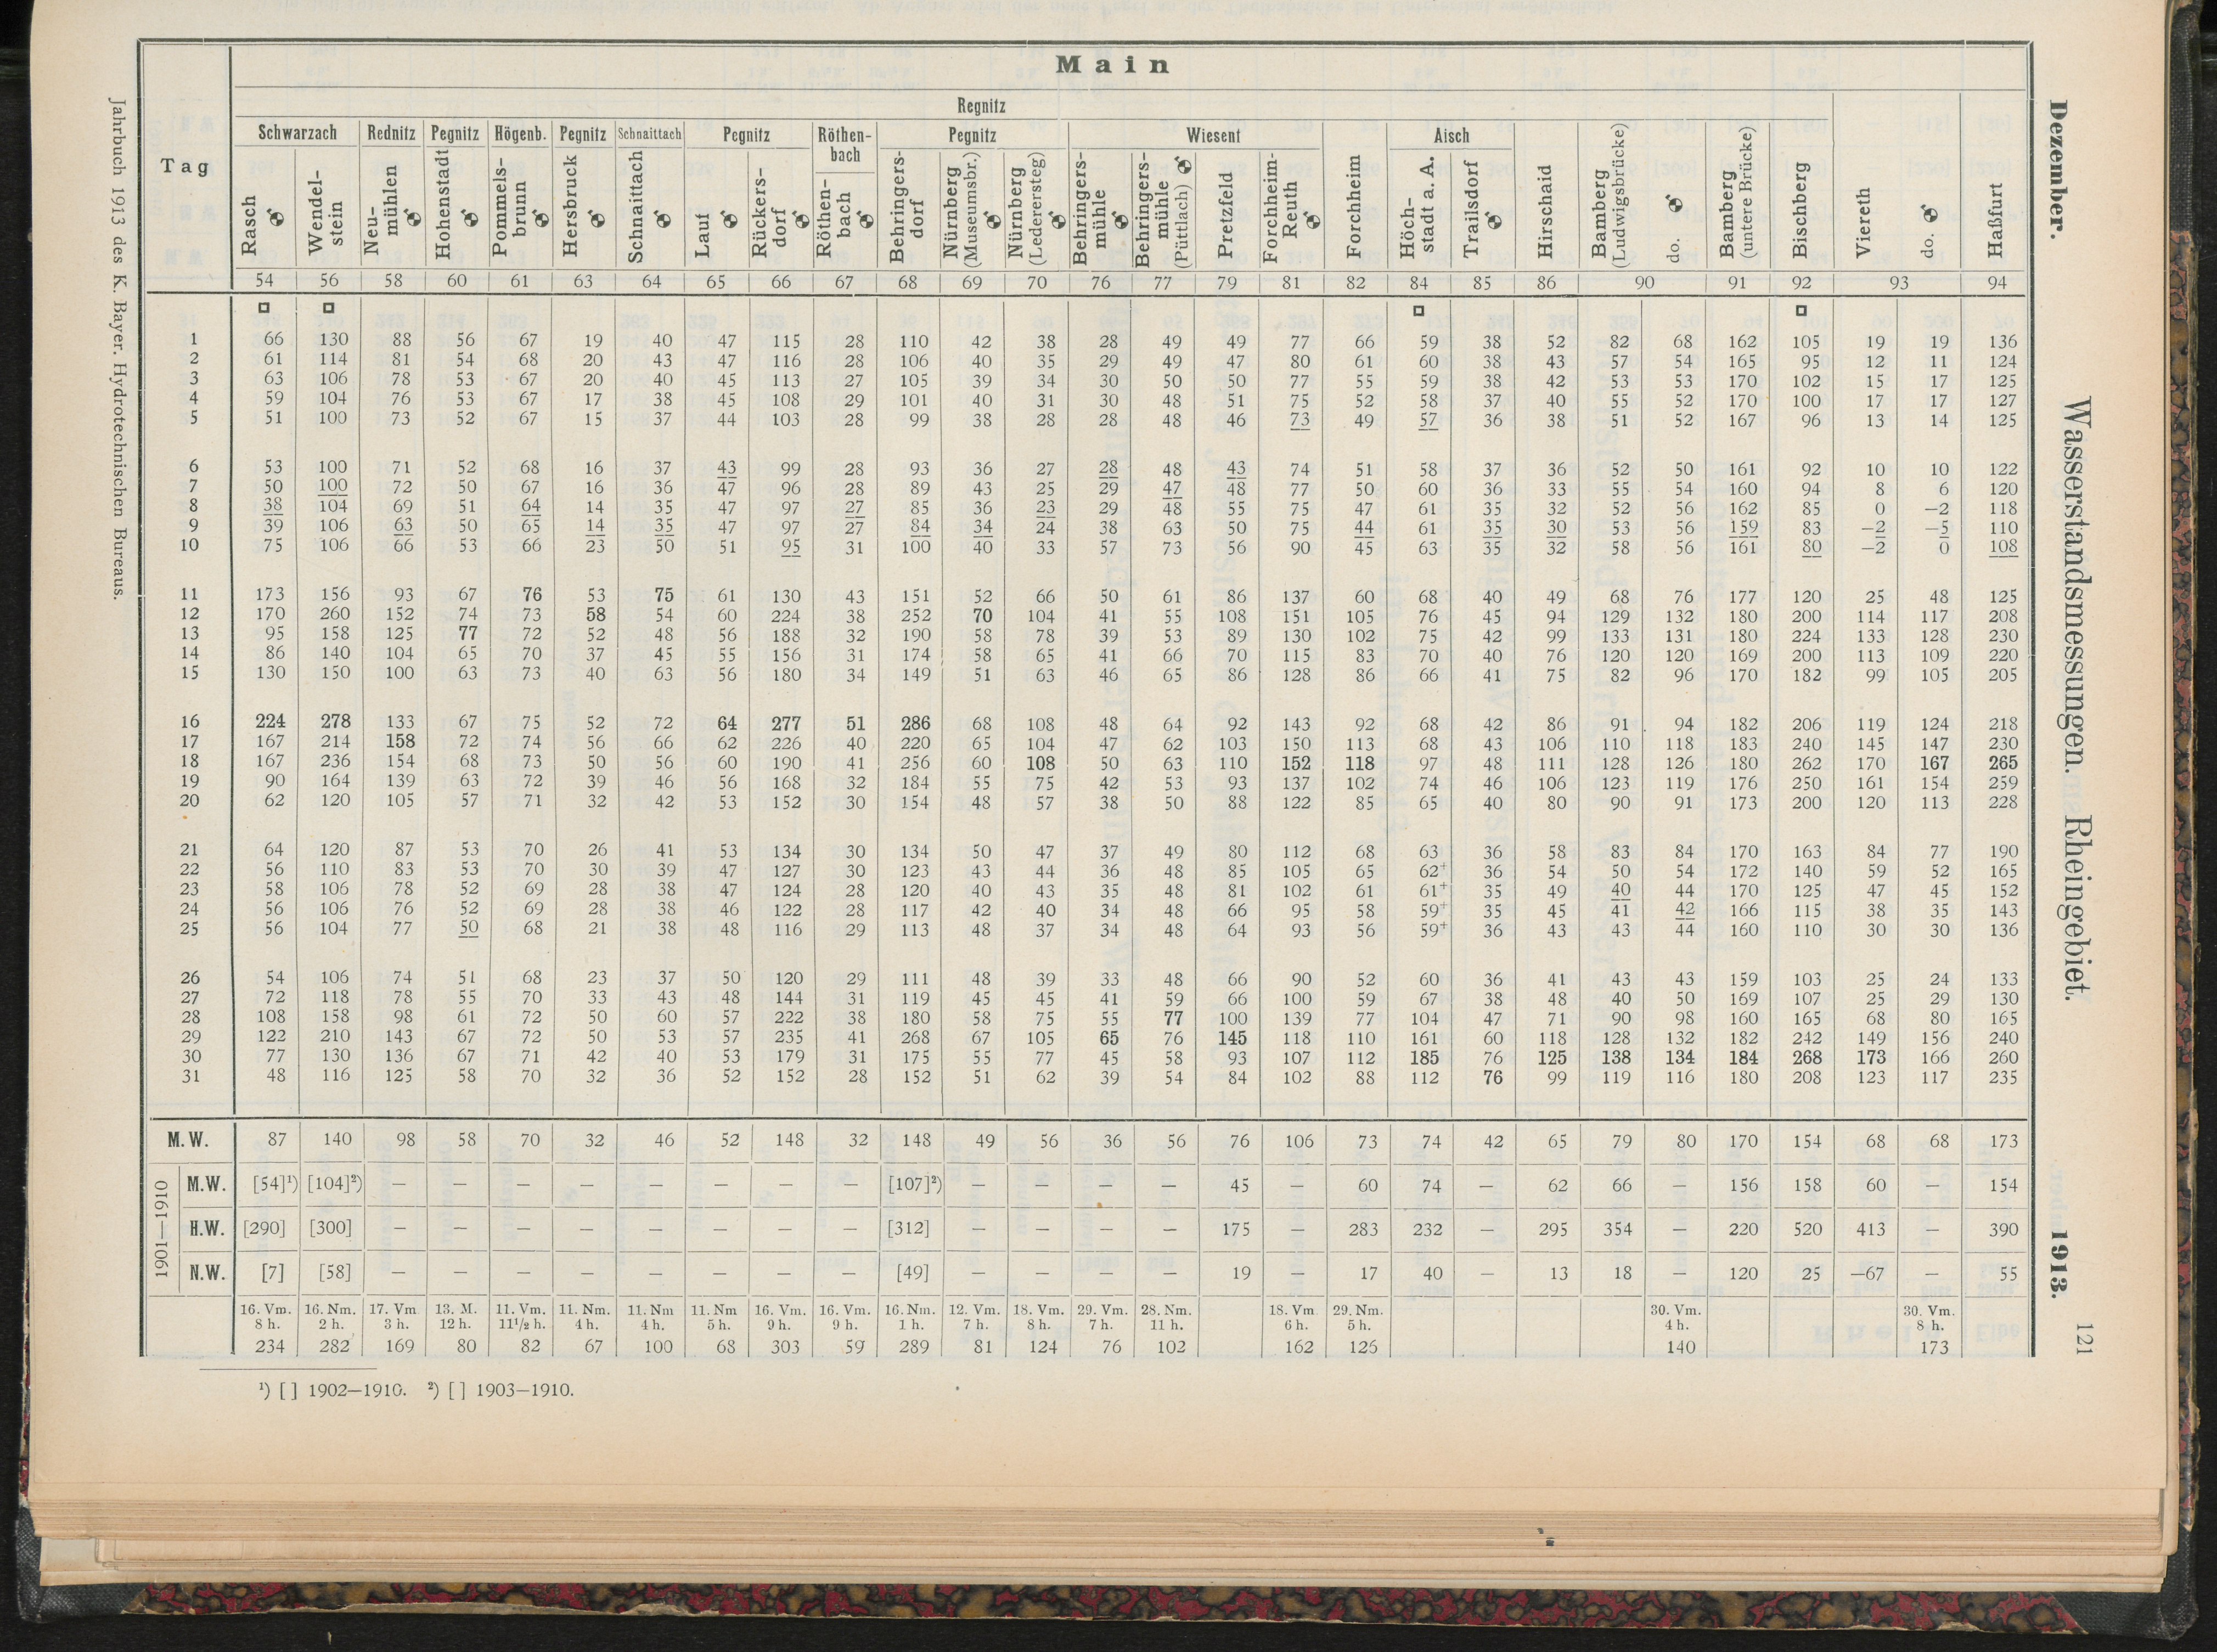 Main
Regnitz
Schwarzach Rednitz Pegnitz Högenb. Pegnitz Schnaittach Pegnitz Röthenbach Pegnitz Wiesent Aisch
Tag Rasch Wendelstein Neumühlen Hohenstadt Pommelsbrunn Hersbruck Schnaittach Lauf Rückersdorf Röthenbach Behringersdorf Nürnberg (Museumsbr.) Nürnberg (Lederersteg) Behringersmühle Behringersmühle (Püttlach) Pretzfeld Forchheim-Reuth Forchheim Höchstadt a. A. Trailsdorf Hirschaid Bamberg (Ludwigsbrücke) do. Bamberg (untere Brücke) Bischberg Viereth do. Haßfurt
54 56 58 60 61 63 64 65 66 67 68 69 70 76 77 79 81 82 84 85 86 90 91 92 93 94
1 66 130 88 56 67 19 40 47 115 28 110 42 38 28 49 49 77 66 59 38 52 82 68 162 105 19 19 136
2 61 114 81 54 68 20 43 47 116 28 106 40 35 29 49 47 80 61 60 38 43 57 54 165 95 12 11 124
3 63 106 78 53 67 20 40 45 113 27 105 39 34 30 50 50 77 55 59 38 42 53 53 170 102 15 17 125
4 59 104 76 53 67 17 38 45 108 29 101 40 31 30 48 51 75 52 58 37 40 55 52 170 100 17 17 127
5 51 100 73 52 67 15 37 44 103 28 99 38 28 28 48 46 73 49 57 36 38 51 52 167 96 13 14 125
6 53 100 71 52 68 16 37 43 99 28 93 36 27 28 48 43 74 51 58 37 36 52 50 161 92 10 10 122
7 50 100 72 50 67 16 36 47 96 28 89 43 25 29 47 48 77 50 60 36 33 55 54 160 94 8 6 120
8 38 104 69 51 64 14 35 47 97 27 85 36 23 29 48 55 75 47 61 35 32 52 56 162 85 0 −2 118
9 39 106 63 50 65 14 35 47 97 27 84 34 24 38 63 50 75 44 61 35 30 53 56 159 83 −2 −5 110
10 75 106 66 53 66 23 50 51 95 31 100 40 33 57 73 56 90 45 63 35 32 58 56 161 80 −2 0 108
11 173 156 93 67 76 53 75 61 130 43 151 52 66 50 61 86 137 60 68 40 49 68 76 177 120 25 48 125
12 170 260 152 74 73 58 54 60 224 38 252 70 104 41 55 108 151 105 76 45 94 129 132 180 200 114 117 208
13 95 158 125 77 72 52 48 56 188 32 190 58 78 39 53 89 130 102 75 42 99 133 131 180 224 133 128 230
14 86 140 104 65 70 37 45 55 156 31 174 58 65 41 66 70 115 83 70 40 76 120 120 169 200 113 109 220
15 130 150 100 63 73 40 63 56 180 34 149 51 63 46 65 86 128 86 66 41 75 82 96 170 182 99 105 205
16 224 278 133 67 75 52 72 64 277 51 286 68 108 48 64 92 143 92 68 42 86 91 94 182 206 119 124 218
17 167 214 158 72 74 56 66 62 226 40 220 65 104 47 62 103 150 113 68 43 106 110 118 183 240 145 147 230
18 167 236 154 68 73 50 56 60 190 41 256 60 108 50 63 110 152 118 97 48 111 128 126 180 262 170 167 265
19 90 164 139 63 72 39 46 56 168 32 184 55 75 42 53 93 137 102 74 46 106 123 119 176 250 161 154 259
20 62 120 105 57 71 32 42 53 152 30 154 48 57 38 50 88 122 85 65 40 80 90 91 173 200 120 113 228
21 64 120 87 53 70 26 41 53 134 30 134 50 47 37 49 80 112 68 63 36 58 83 84 170 163 84 77 190
22 56 110 83 53 70 30 39 47 127 30 123 43 44 36 48 85 105 65 62+ 36 54 50 54 172 140 59 52 165
23 58 106 78 52 69 28 38 47 124 28 120 40 43 35 48 81 102 61 61+ 35 49 40 44 170 125 47 45 152
24 56 106 76 52 69 28 38 46 122 28 117 42 40 34 48 66 95 58 59+ 35 45 41 42 166 115 38 35 143
25 56 104 77 50 68 21 38 48 116 29 113 48 37 34 48 64 93 56 59+ 36 43 43 44 160 110 30 30 136
26 54 106 74 51 68 23 37 50 120 29 111 48 39 33 48 66 90 52 60 36 41 43 43 159 103 25 24 133
27 72 118 78 55 70 33 43 48 144 31 119 45 45 41 59 66 100 59 67 38 48 40 50 169 107 25 29 130
28 108 158 98 61 72 50 60 57 222 38 180 58 75 55 77 100 139 77 104 47 71 90 98 160 165 68 80 165
29 122 210 143 67 72 50 53 57 235 41 268 67 105 65 76 145 118 110 161 60 118 128 132 182 242 149 156 240
30 77 130 136 67 71 42 40 53 179 31 175 55 77 45 58 93 107 112 185 76 125 138 134 184 268 173 166 260
31 48 116 125 58 70 32 36 52 152 28 152 51 62 39 54 84 102 88 112 76 99 119 116 180 208 123 117 235
M.W. 87 140 98 58 70 32 46 52 148 32 148 49 56 36 56 76 106 73 74 42 65 79 80 170 154 68 68 173
1901—1910
M.W. [54]¹) [104]²) — — — — — — — — [107]²) — — — — 45 — 60 74 — 62 66 — 156 158 60 — 154
H.W. [290] [300] — — — — — — — — [312] — — — — 175 — 283 232 — 295 354 — 220 520 413 — 390
N.W. [7] [58] — — — — — — — — [49] — — — — 19 — 17 40 — 13 18 — 120 25 −67 — 55
16. Vm. 16. Nm. 17. Vm 13. M. 11. Vm. 11. Nm. 11. Nm 11. Nm 16. Vm. 16. Vm. 16. Nm. 12. Vm. 18. Vm. 29. Vm. 28. Nm. 18. Vm 29. Nm. 30. Vm. 30. Vm.
8 h. 2 h. 3 h. 12 h. 11½ h. 4 h. 4 h. 5 h. 9 h. 9 h. 1 h. 7 h. 8 h. 7 h. 11 h. 6 h. 5 h. 4 h. 8 h.
234 282 169 80 82 67 100 68 303 59 289 81 124 76 102 162 126 140 173
¹) [ ] 1902—1910. ²) [ ] 1903—1910.
Dezember. Wasserstandsmessungen. Rheingebiet. 1913. 121
Jahrbuch 1913 des K. Bayer. Hydrotechnischen Bureaus.